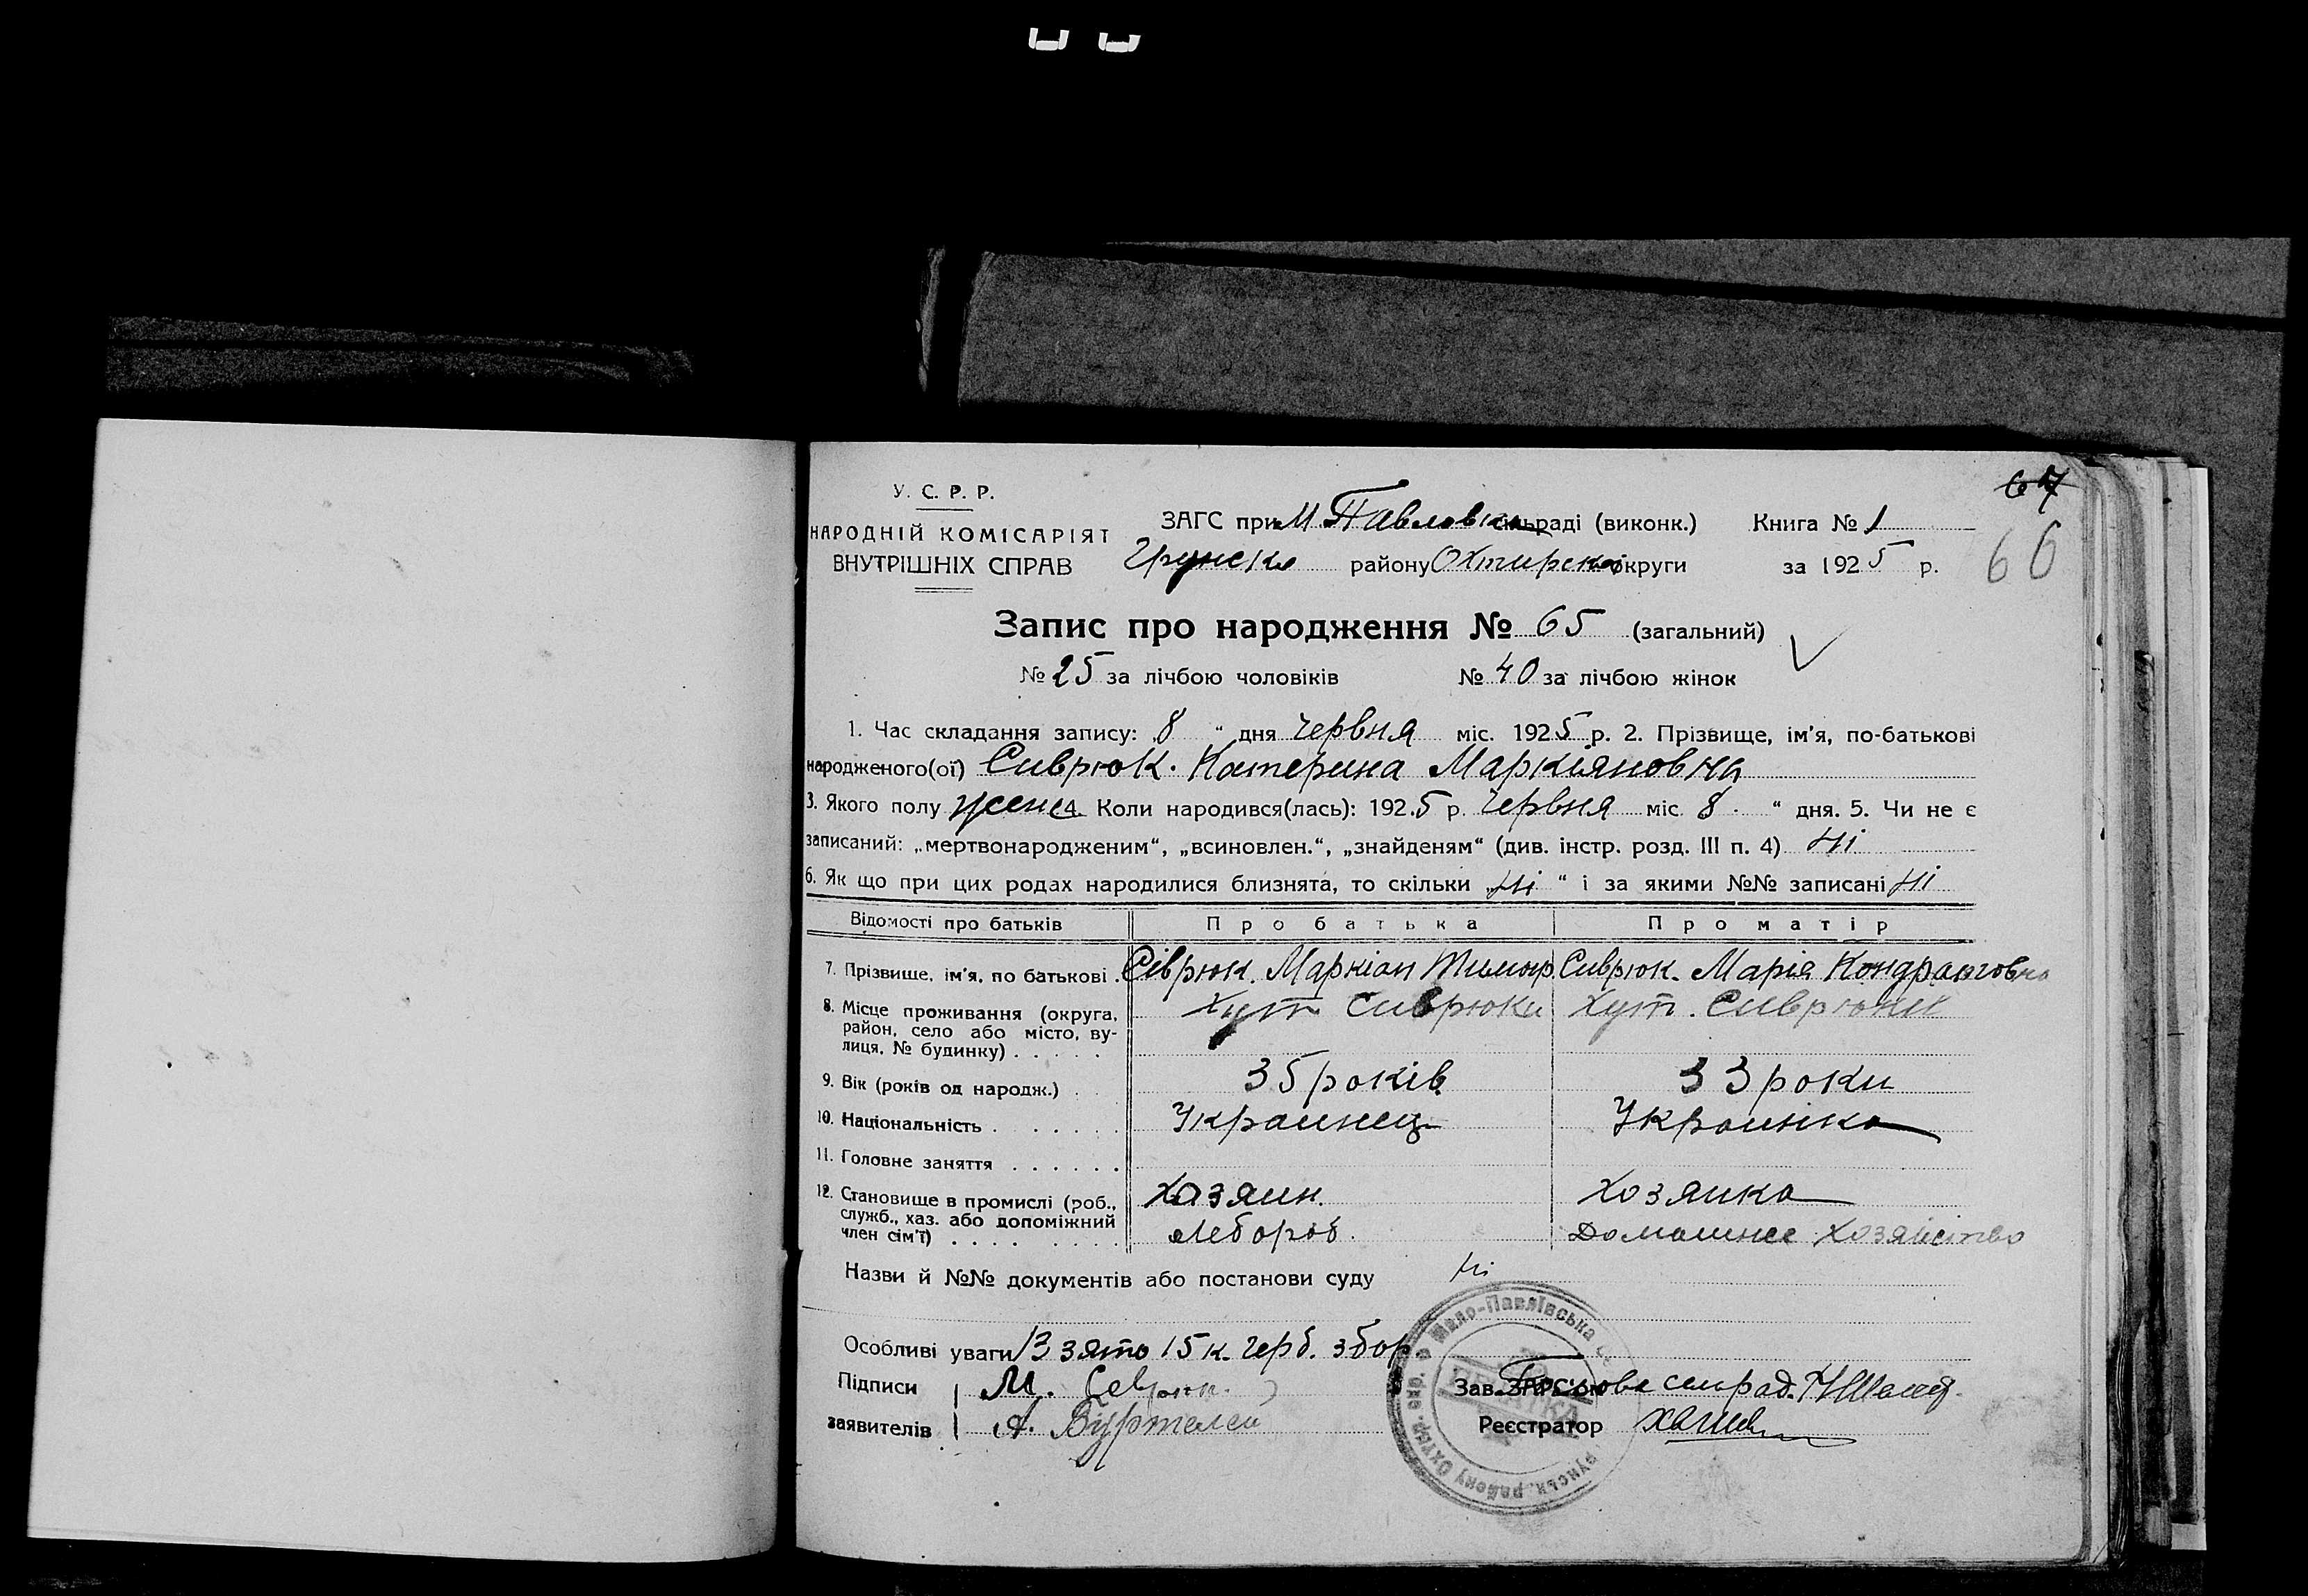 67
У. С. Р. Р.
НАРОДНІЙ КОМІСАРІЯТ
ВНУТРІШНІХ СПРАВ
ЗАГС при М Павловка сільраді (виконк.) Книга № 1
Грунско району Охтирской округи за 1925 р.
66
Запис про народження № 65 (загальний)
№ 25 за лічбою чоловіків № 40 за лічбою жінок
1. Час складання запису: „8“ дня Червня міс. 1925 р. 2. Прізвище, ім'я, по-батькові
народженого(ої) Сиврюк. Катерина Маркіяновна
3. Якого полу жено 4. Коли народився(лась): 1925 р. Червня міс. 8 “ дня. 5. Чи не є
записаний: „мертвонародженим“, „всиновлен.“, „знайденям“ (див. інстр. розд. III п. 4) Ні
6. Як що при цих родах народилися близнята, то скільки „Ні“ і за якими №№ записані Ні
Відомості про батьків Про батька Про матір
7. Прізвище, ім'я, по батькові . Сіврюк. Маркіан Тимоф. Сиврюк. Марія Кондратовна
8. Місце проживання (округа, район, село або місто, вулиця, № будинку) . . . . . Хут Сиврюки Хут. Сиврюки
9. Вік (років од народж.) . 35 років 33 роки
10. Національність . . . . . . . Украинец Украинка
11. Головне заняття . . . . . .
12. Становище в промислі (роб., служб., хаз. або допоміжний член сім'ї) . . . . . . . . Хозяин. Хозяика
Леборов. Домашнее хозяйство
Назви й №№ документів або постанови суду Ні
Особливі уваги Взято 15 к. герб. збор
Підписи М. Севрюк.
заявителів А.
Зав. ЗАГС'ом Голова сильрад.
Реєстратор
Мало-Павлівська
району Охтир. окр.